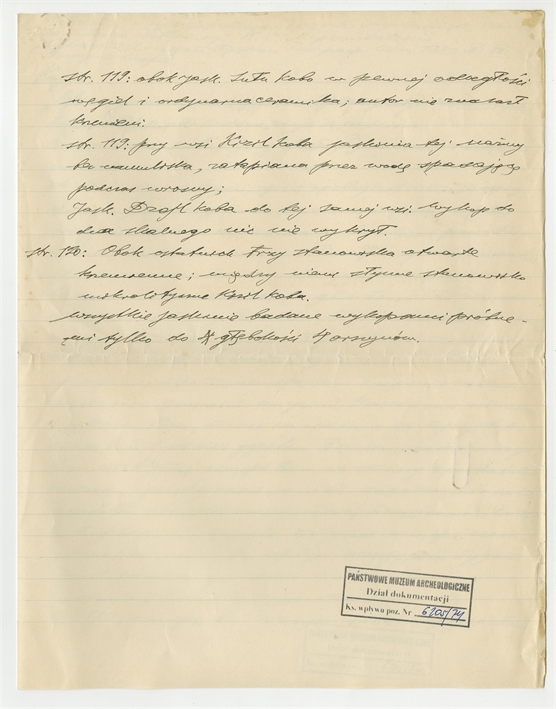 str. 119: obok jask. Sulu Koba w pewnej odległości
węgiel i ordynarna ceramika; autor nie znalazł
krzemieni.
str. 119: przy wsi Kizil Koba jaskinia tej nazwy
bez namuliska, zatapiana przez wodę spadającą
podczas wiosny;
Jask. Dzafl Koba do tej samej wsi. Wykop do
dna skalnego nic nie wykrył.
str. 120: Obok ostatnich trzy stanowiska otwarte
krzemienne; między niemi słynne stanowisko
mikrolityczne Kizil Koba.
Wszystkie jaskinie badane wykopami próbne-
mi tylko do głębokości 4 arszynów.
PAŃSTWOWE MUZEUM ARCHEOLOGICZNE
Dział dokumentacji
Ks. wpływu poz. Nr 6205/74